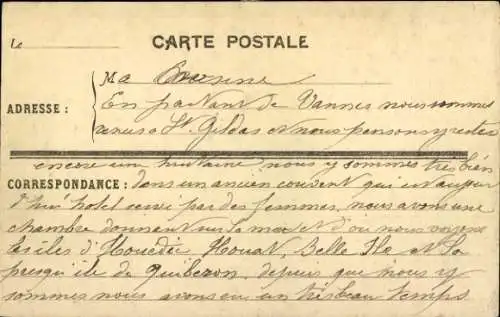 Le
CARTE POSTALE
Ma Cousine
ADRESSE :
En partant de Vannes nous sommes
venus a St Gildas et nous pensons y rester
encore une huitaine nous y sommes très bien
CORRESPONDANCE : dans un ancien couvent qui est aujour
d'hui hotel servi par des femmes, nous avons une
chambre donnant sur la mer et d'ou nous voyons
les iles d'Houedic Houat, Belle Ile et la
presqu'ile de Quiberon, depuis que nous y
sommes nous avons eu un très beau temps